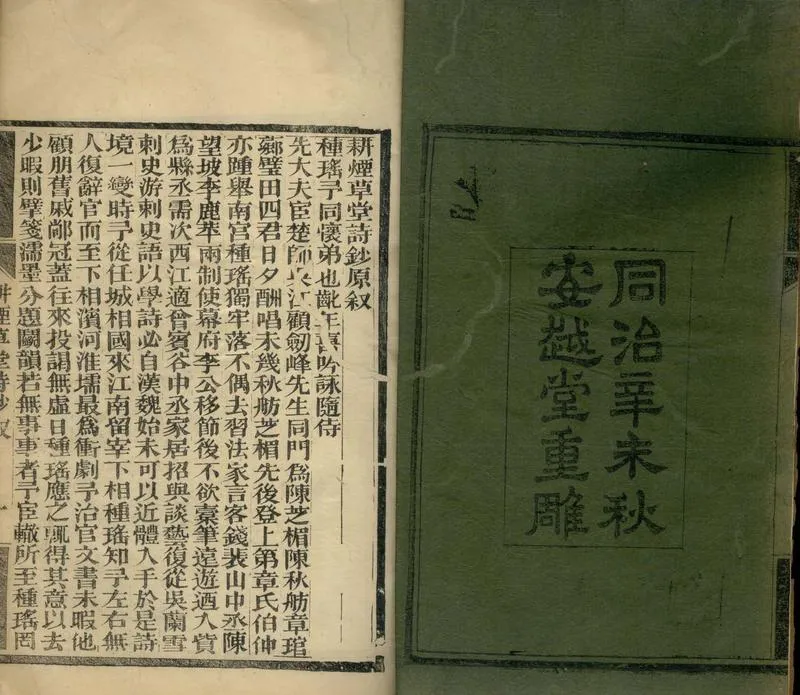 同治辛未秋
安越堂重雕
耕煙草堂詩鈔原叙
種瑤予同懷弟也齔年喜吟詠隨侍
先大夫宦楚師吳江顧劒峰先生同門為陳芝楣陳秋舫章琯
薌璧田四君日夕酬唱未幾秋舫芝楣先後登上第章氏伯仲
亦踵舉南宮種瑤獨牢落不偶去習法家言客錢裴山中丞陳
望坡李鹿苹兩制使幕府李公移節後不欲橐筆遠遊迺入貲
為縣丞需次西江適曾賓谷中丞家居招與談藝復從吳蘭雪
刺史游刺史語以學詩必自漢魏始未可以近體入手於是詩
境一變時予從任城相國來江南留宰下相種瑤知予左右無
人復辭官而至下相濱河淮壖最為衝劇予治官文書未暇他
顧朋舊戚鄰冠蓋往來投謁無虛日種瑤應之輒得其意以去
少暇則擘箋濡墨分題鬬韻若無事事者予宦轍所至種瑤罔
耕煙草堂詩鈔 叙 一